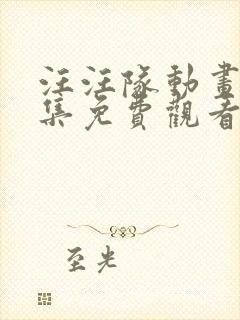 汪汪隊動畫
集免費觀看
至光